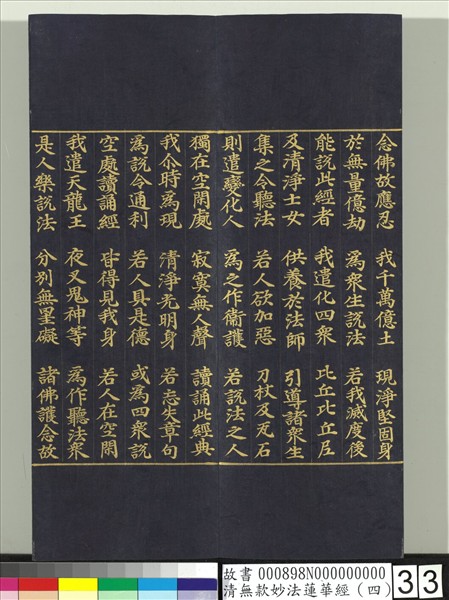 念佛故應忍 我千萬億土 現淨堅固身
於無量億劫 為衆生說法 若我滅度後
能說此經者 我遣化四衆 比丘比丘尼
及清淨士女 供養於法師 引導諸衆生
集之令聽法 若人欲加惡 刀杖及瓦石
則遣變化人 為之作衞護 若說法之人
獨在空閑處 寂寞無人聲 讀誦此經典
我尒時為現 清淨光明身 若忘失章句
為說令通利 若人具是德 或為四衆說
空處讀誦經 皆得見我身 若人在空閑
我遣天龍王 夜叉鬼神等 為作聽法衆
是人樂說法 分別無罣礙 諸佛護念故
故書 000898N000000000
清無款妙法蓮華經(四)
33